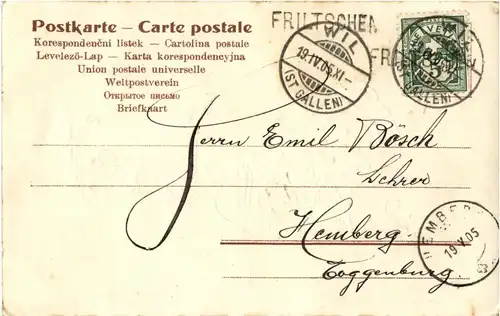 Postkarte — Carte postale
Korespondenční listek — Cartolina postale
Levelező-Lap — Karta korespondencyjna
Union postale universelle
Weltpostverein
Открытое письмо
Briefkaart
FRILTSCHEN
WIL
19.IV.05.XI-
(ST GALLEN)
Herrn Emil Bösch
Lehrer
Hemberg
Toggenburg.
HEMBERG
19.V.05